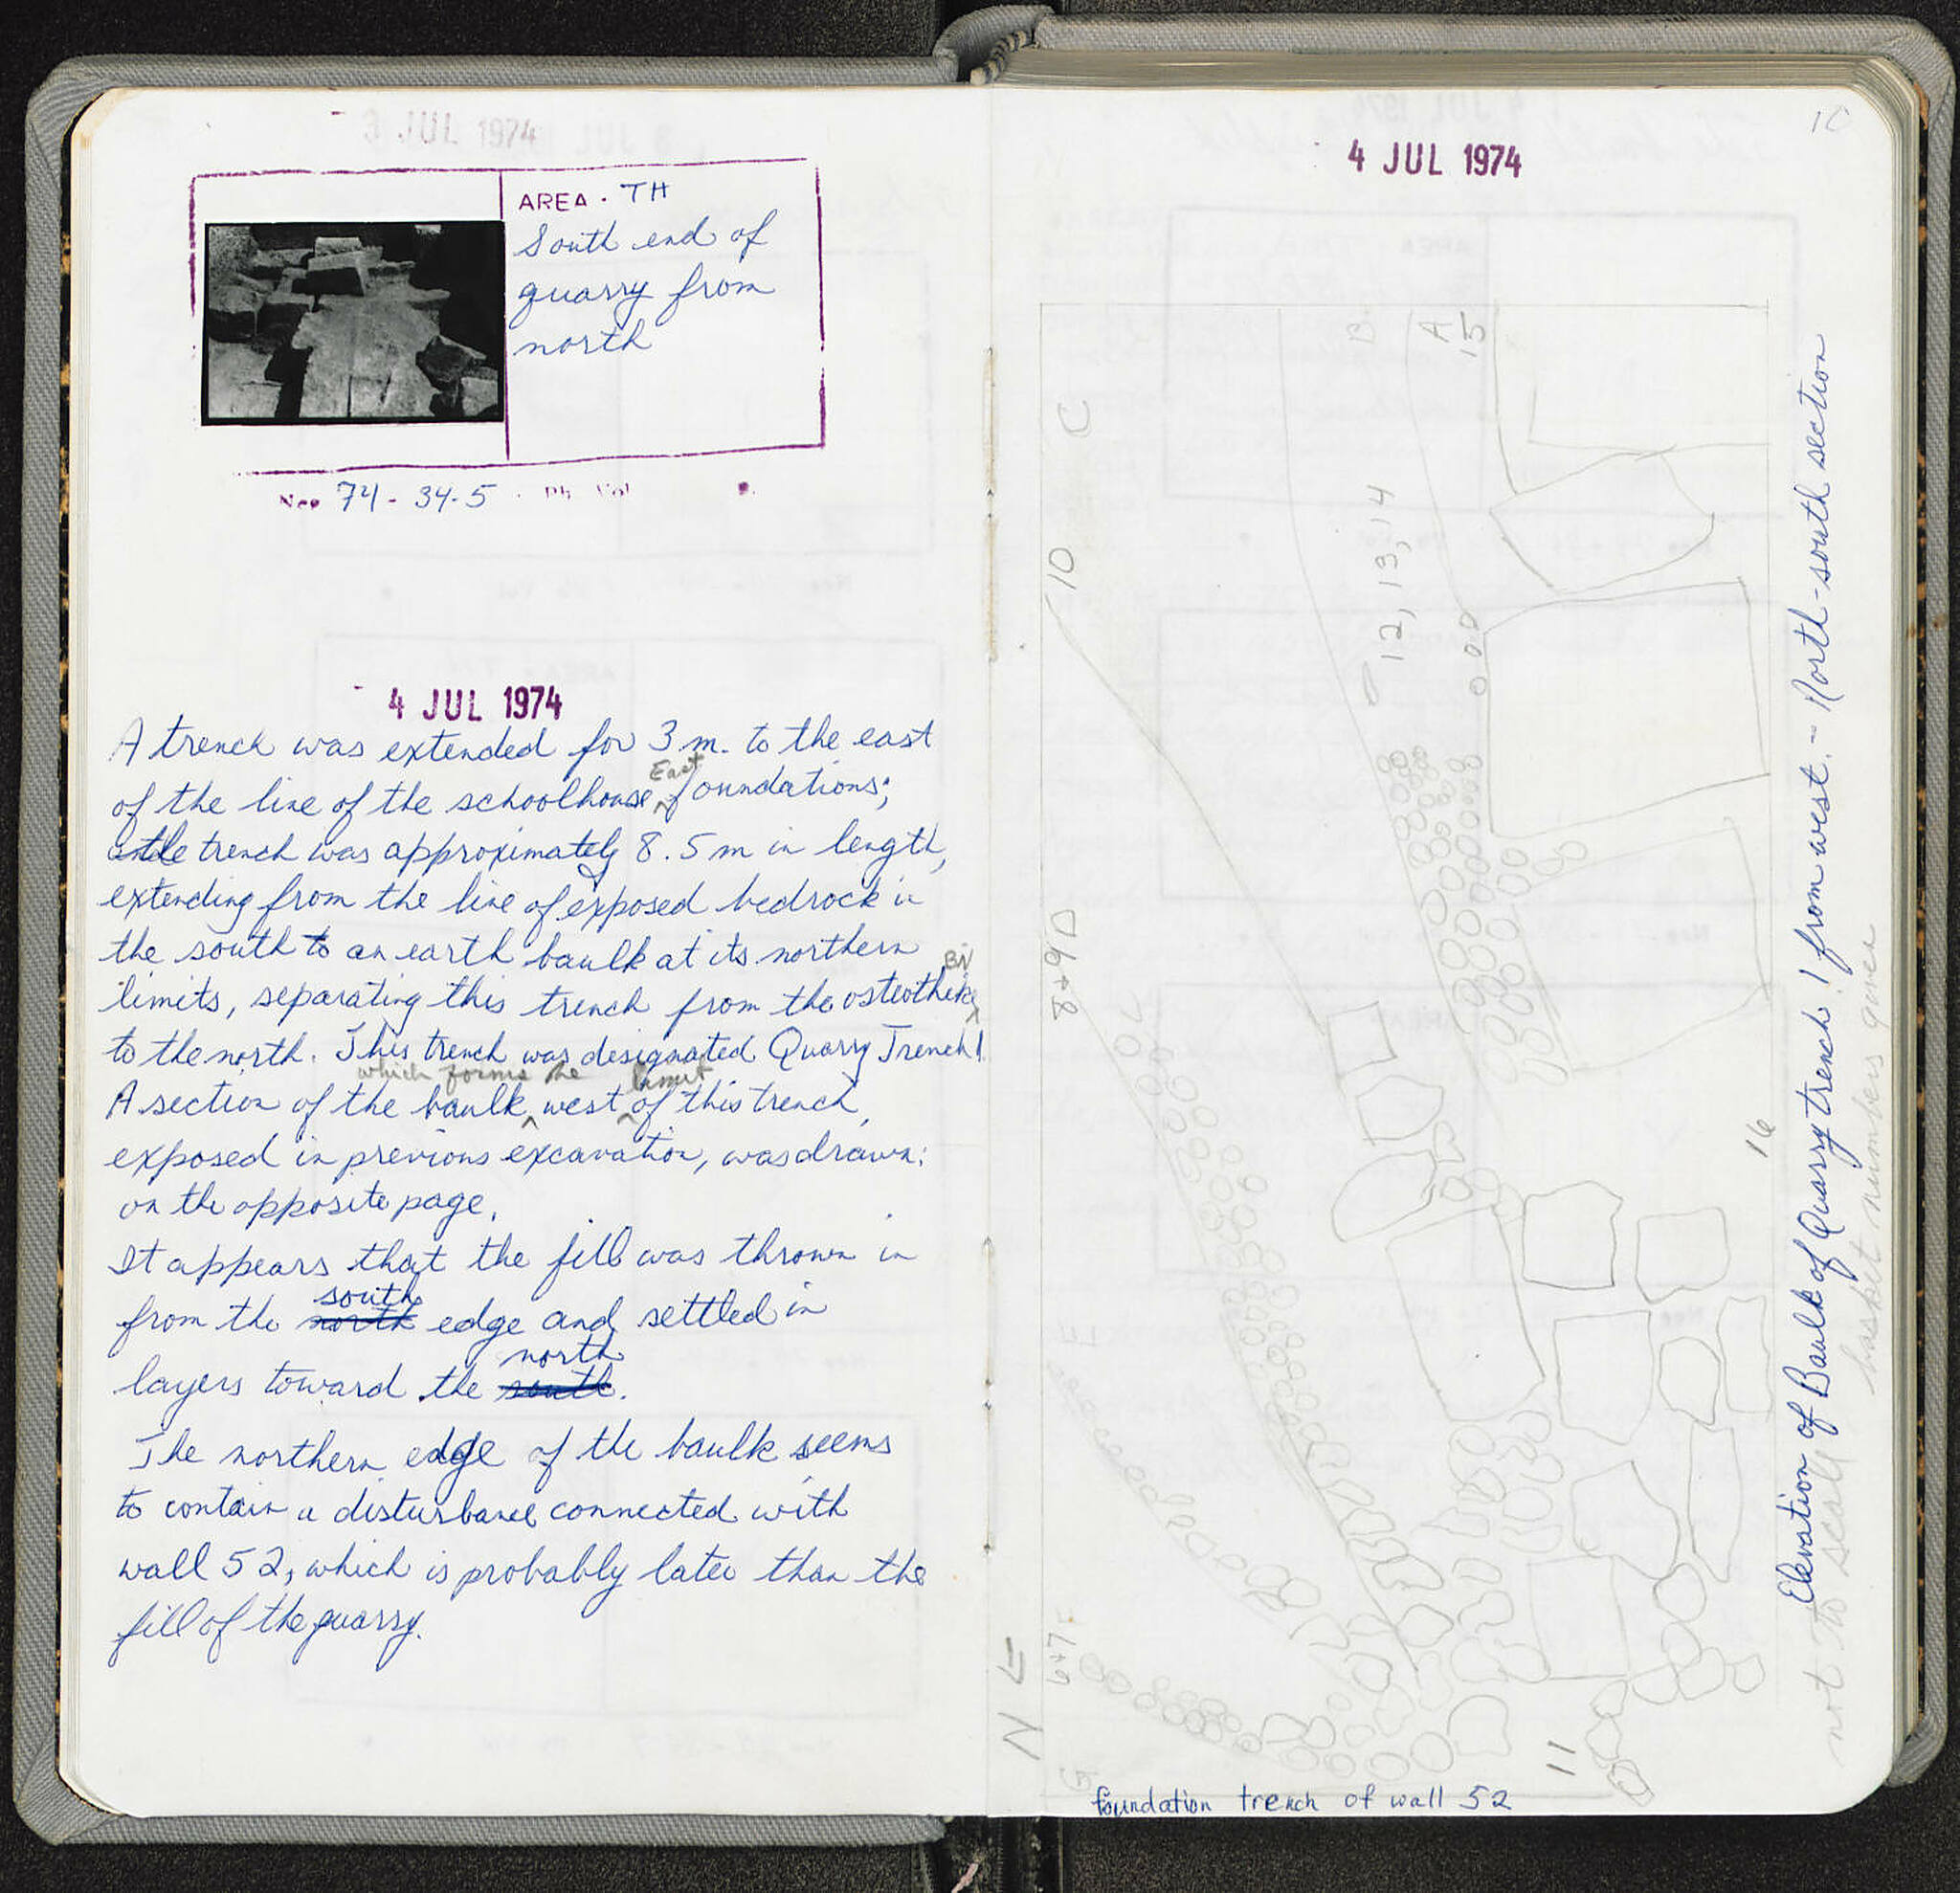 3 JUL 1974
AREA . TH
South end of
quarry from
north
Neg 74 - 34-5 . Ph Vol
4 JUL 1974
A trench was extended for 3 m. to the east
of the line of the schoolhouse East foundations;
the trench was approximately 8.5 m in length,
extending from the line of exposed bedrock in
the south to an earth baulk at its northern
limits, separating this trench from the osteotheke
to the north. This trench was designated Quarry Trench 1
A section of the baulk which forms the west limit of this trench,
exposed in previous excavation, was drawn:
on the opposite page.
It appears that the fill was thrown in
from the north south edge and settled in
layers toward the south north.
The northern edge of the baulk seems
to contain a disturbance connected with
wall 52, which is probably later than the
fill of the quarry.
4 JUL 1974
10
C
B
A
15
10
12, 13, 14
D
8+9
E
16
6+7
11
N
foundation trench of wall 52
Elevation of Baulk of Quarry trench 1 from west. - North-south section
not to scale
basket numbers given